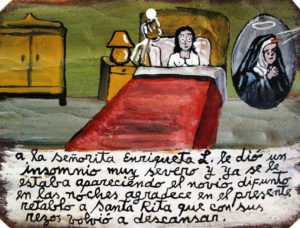 a la Señorita Enriqueta L. le dió un
insomnio muy severo y ya se le
estaba apareciendo el novio difunto
en las noches agradece en el presente
retablo a Santa Rita que con sus
rezos volvió a descansar.